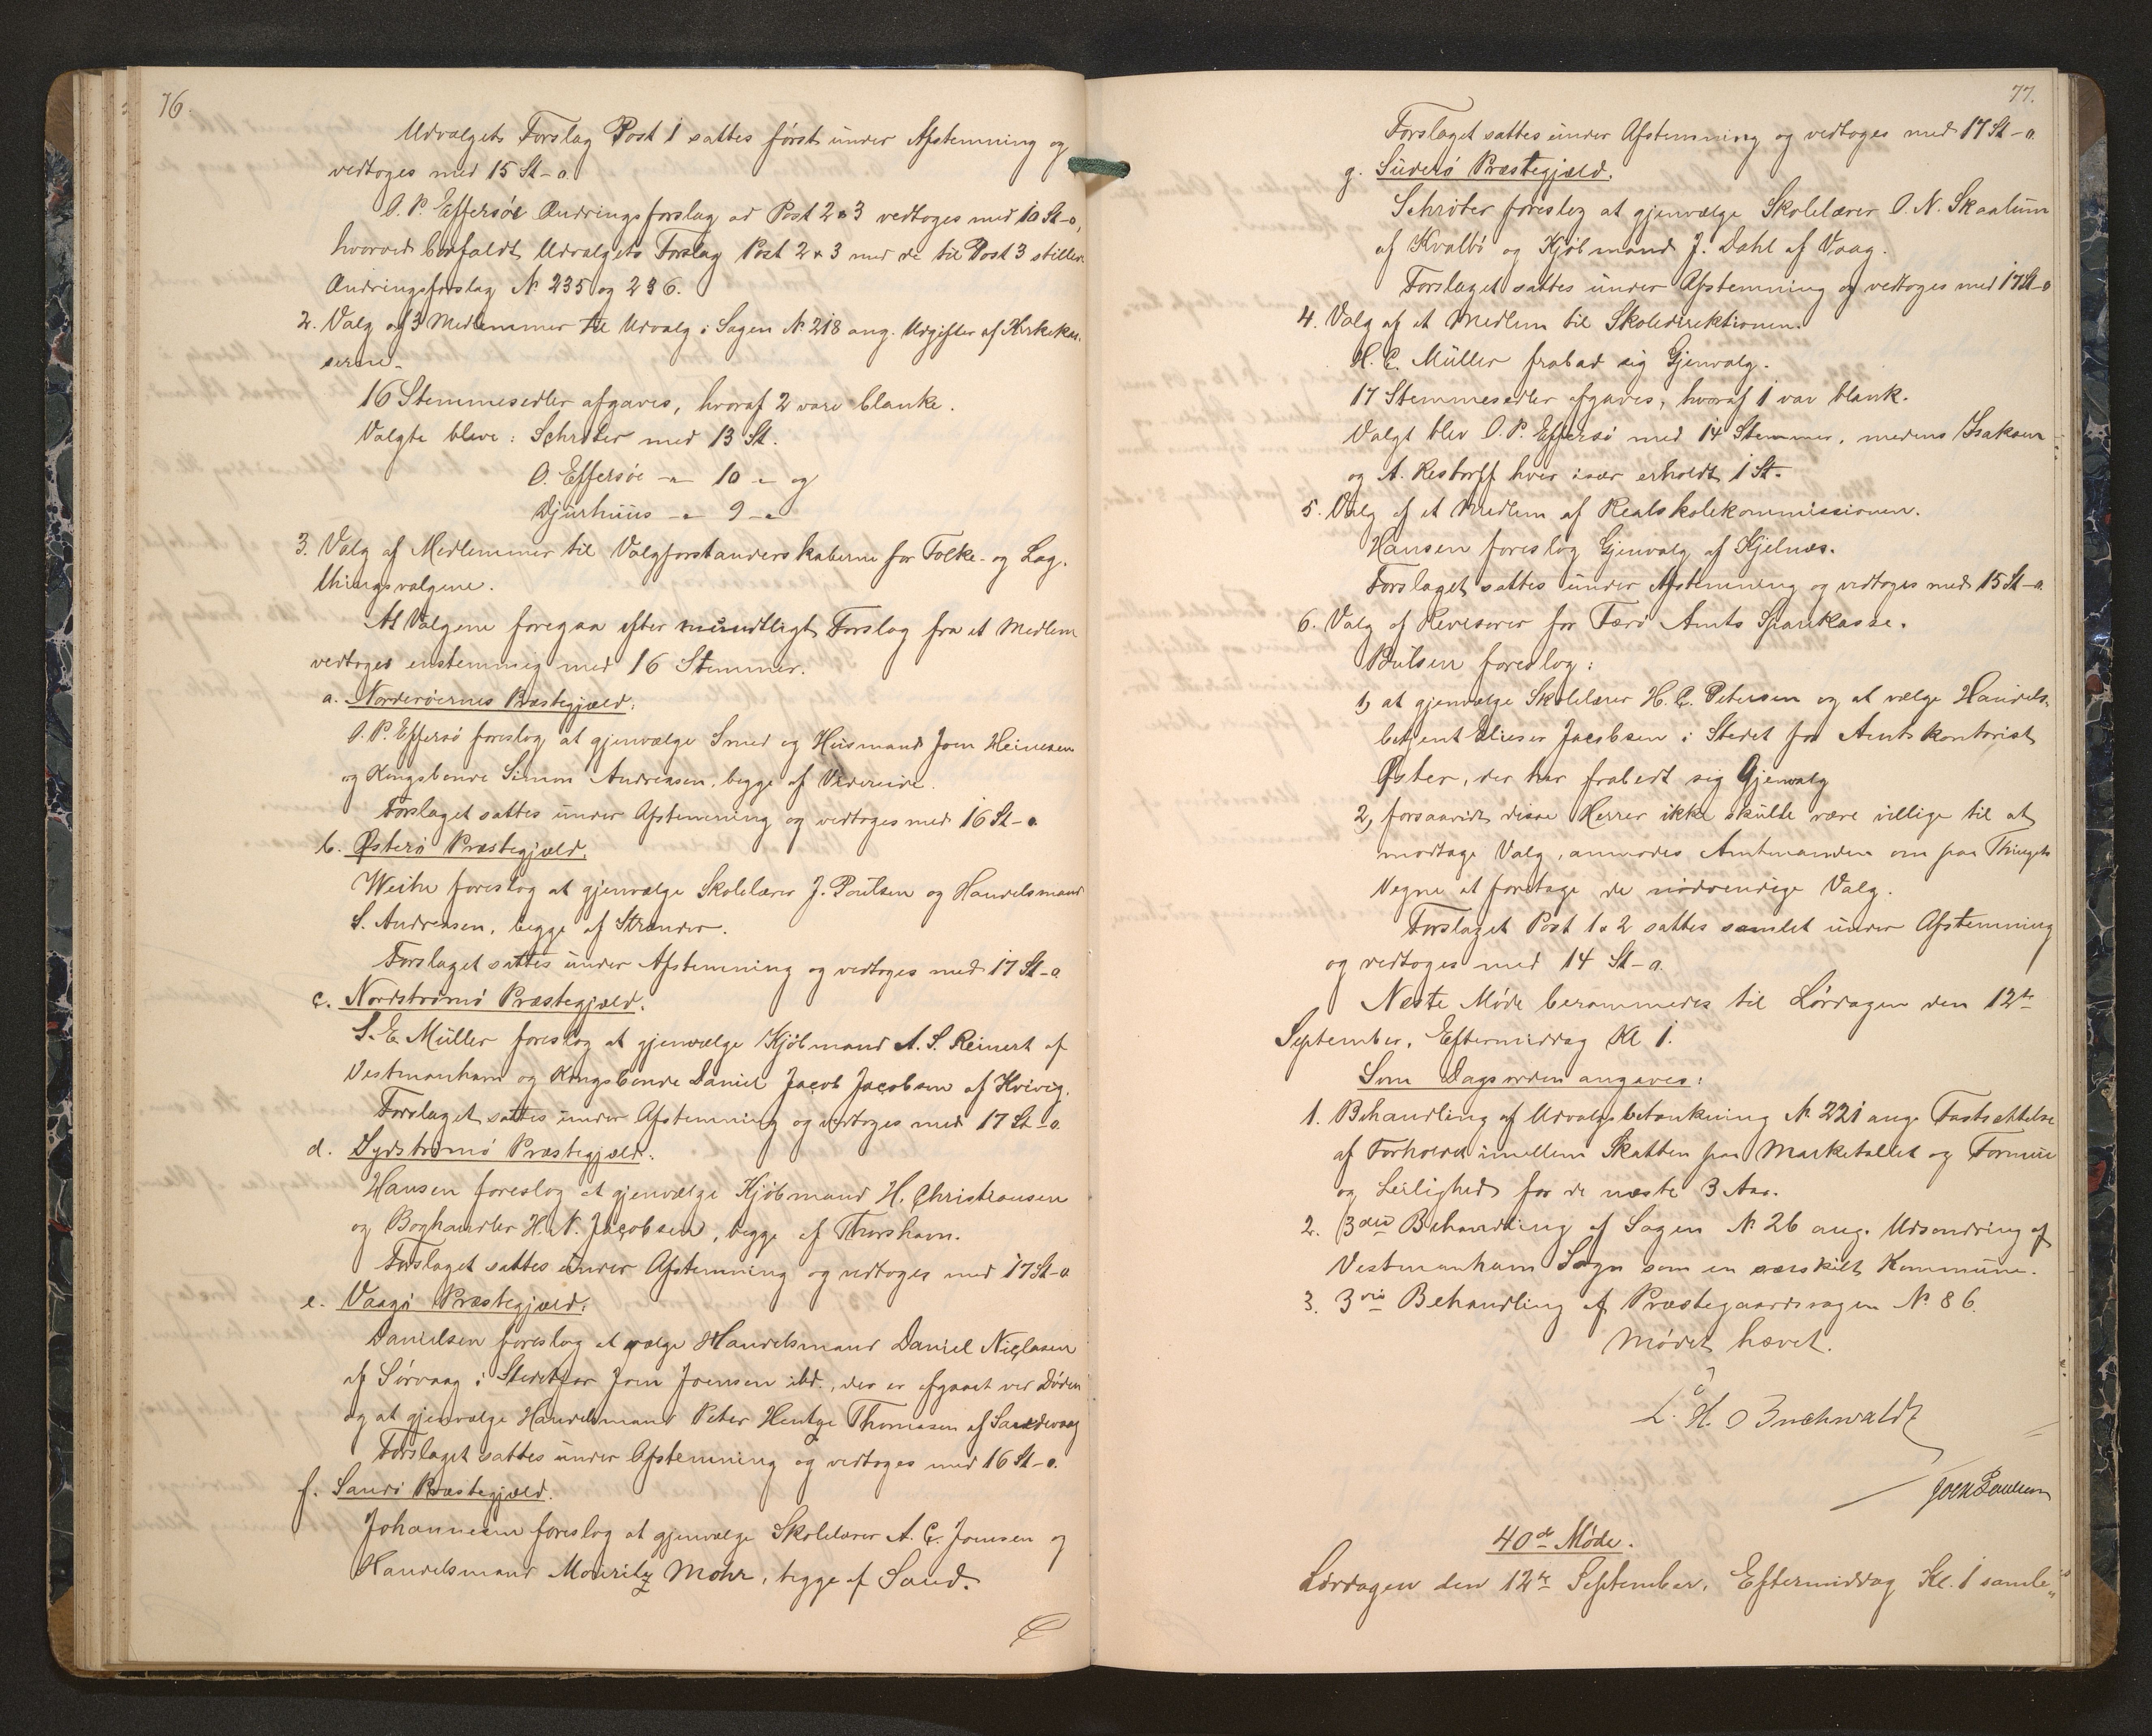 76.
Udvalgets Forslag Post 1 sattes først under Afstemning og
vedtoges med 15 St-o.
O. P. Effersøe Ændringsforslag ad Post 2 & 3 vedtoges med 10 St-o,
hvorved bortfaldt Udvalgets Forslag Post 2 & 3 med de til Post 3 stillede
Ændringsforslag № 235 og 236.
2. Valg af 3 Medlemmer til Udvalg i Sagen № 218 ang. Udgifter af Kirkekas-
serne.
16 Stemmesedler afgaves, hvoraf 2 vare blanke.
Valgte bleve: Schrøter med 13 St.
O. Effersøe -"- 10 - og
Djurhuus -"- 9 -"-
3. Valg af Medlemmer til Valgforstanderskaberne for Folke- og Lag-
thingsvalgene.
At Valgene foregaa efter mundtligt Forslag fra et Medlem
vedtoges enstemmig med 16 Stemmer.
a. Norderøernes Præstegjæld.
O. P. Effersø foreslog at gjenvælge Smed og Husmand Joen Heinesen
og Kongsbonde Simon Andreasen, begge af Videreide.
Forslaget sattes under Afstemning og vedtoges med 16 St-o.
b. Østerø Præstegjæld.
Weihe foreslog at gjenvælge Skolelærer J. Poulsen og Handelsmand
S. Andreasen, begge af Strender.
Forslaget sattes under Afstemning og vedtoges med 17 St-o.
c. Nordstrømø Præstegjæld.
S. E. Müller foreslog at gjenvælge Kjøbmand A. S. Reinert af
Vestmanhavn og Kongsbonde Daniel Jacob Jacobsen af Kvivig.
Forslaget sattes under Afstemning og vedtoges med 17 St-o.
d. Sydstrømø Præstegjæld.
Hansen foreslog at gjenvælge Kjøbmand H. Christiansen
og Boghandler H. N. Jacobsen, begge af Thorshavn.
Forslaget sattes under Afstemning og vedtoges med 17 St-o.
e. Vaagø Præstegjæld.
Danielsen foreslog at vælge Handelsmand Daniel Niclasen
af Sørvaag i Stedet for Joen Joensen ibd., der er afgaaet ved Døden
og at gjenvælge Handelsmand Peter Hentze Thomasen af Sandevaag
Forslaget sattes under Afstemning og vedtoges med 16 St-o.
f. Sandø Præstegjæld.
Johannesen foreslog at gjenvælge Skolelærer A. C. Joensen og
Handelsmand Mouritz Mohr, begge af Sand.
77.
Forslaget sattes under Afstemning og vedtoges med 17 St-o.
g. Suderø Præstegjæld.
Schrøter foreslog at gjenvælge Skolelærer O. N. Skaalum
af Kvalbø og Kjøbmand J. Dahl af Vaag.
Forslaget sattes under Afstemning og vedtoges med 17 St-o
4. Valg af et Medlem til Skoledirektionen.
H. C. Müller frabad sig Gjenvalg.
17 Stemmesedler afgaves, hvoraf 1 var blank.
Valgt blev O. P. Effersø med 14 Stemmer, medens Isaksen
og A. Restorff hver især erholdt 1 St.
5. Valg af et Medlem af Realskolekommissionen.
Hansen foreslog Gjenvalg af Kjelnæs.
Forslaget sattes under Afstemning og vedtoges med 15 St-o.
6. Valg af Revisorer for Færø Amts Sparekasse.
Poulsen foreslog:
1, at gjenvælge Skolelærer H. C. Petersen og at vælge Handels-
betjent Elieser Jacobsen i Stedet for Amtskontorist
Øster, der har frabedt sig Gjenvalg
2, forsaavidt disse Herrer ikke skulde være villige til at
modtage Valg, anmodes Amtmanden om paa Thingets
Vegne at foretage de nødvendige Valg.
Forslaget Post 1 & 2 sattes samlet under Afstemning
og vedtoges med 14 St-o.
Næste Møde berammedes til Lørdagen den 12te
September, Eftermiddag Kl 1.
Som Dagsorden angaves:
1. Behandling af Udvalgsbetænkning № 221 ang. Fastsættelse
af Forholdet imellem Skatten paa Marketallet og Formue
og Leilighed for de næste 3 Aar.
2. 3die Behandling af Sagen № 26 ang. Udsondring af
Vestmanhavn Sogn som en særskilt Kommune.
3. 3die Behandling af Præstegaardssagen № 86.
Mødet hævet.
L. H. O Buchwaldt
Joen Poulsen
40de Møde.
Lørdagen den 12te September, Eftermiddag Kl. 1 samle-